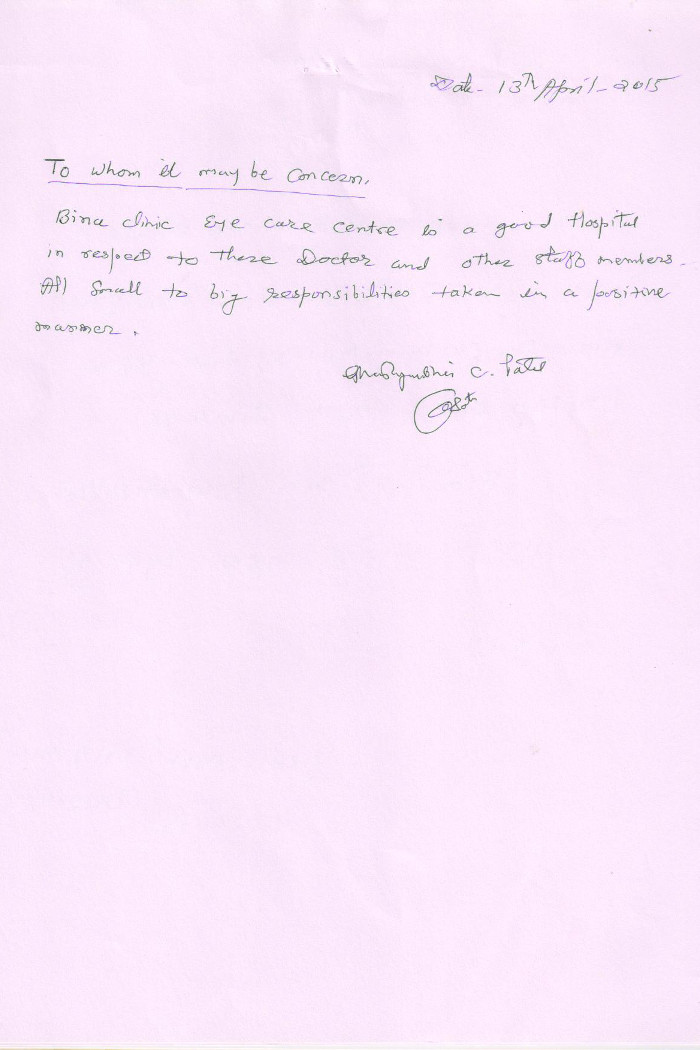 Date - 13th April - 2015
To whom it may be Concern,
Bina clinic Eye care centre is a good Hospital
in respect to there Doctor and other staff members.
All Small to big responsibilities taken in a positive
manner.
C. Patel